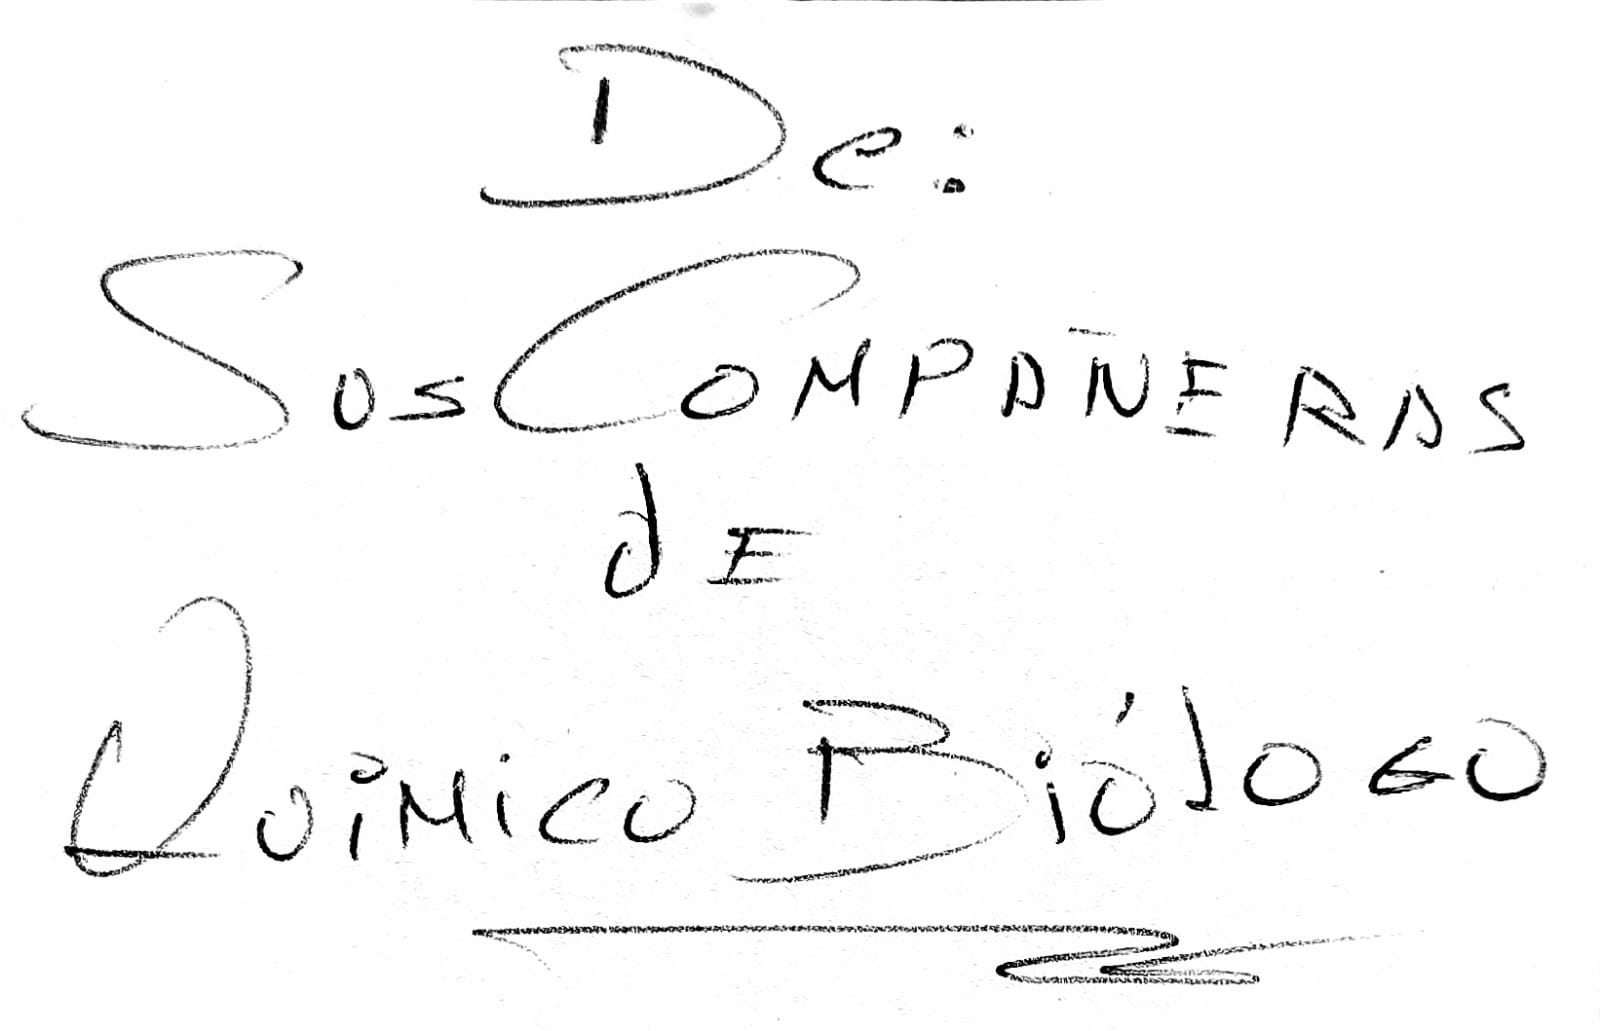 De:
Sus COMPAÑERAS
dE
QuíMico Biólogo